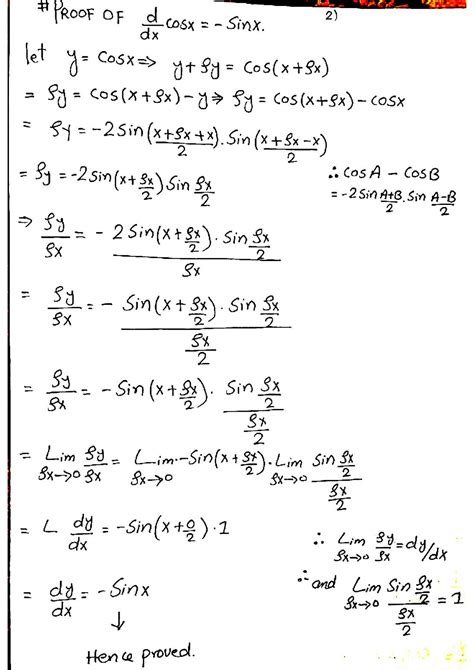 # PROOF OF d/dx cosx = - Sinx. 2)
let y = Cosx ⇒ y + δy = Cos(x + δx)
= δy = Cos(x + δx) - y ⇒ δy = Cos(x + δx) - Cosx
= δy = -2 Sin((x + δx + x)/2) . Sin((x + δx - x)/2)
= δy = -2 Sin(x + δx/2) Sin δx/2 ∴ cos A - cos B
= -2 Sin (A+B)/2 . Sin (A-B)/2
⇒ δy/δx = - 2 Sin(x + δx/2) . Sin δx/2 / δx
= δy/δx = - Sin(x + δx/2) . Sin δx/2 / δx/2
= δy/δx = - Sin(x + δx/2) . Sin δx/2 / δx/2
= Lim δx→0 δy/δx = Lim δx→0 - Sin(x + δx/2) . Lim δx→0 Sin δx/2 / δx/2
= L dy/dx = - Sin(x + 0/2) . 1 ∴ Lim δx→0 δy/δx = dy/dx
= dy/dx = - Sinx ∴ and Lim δx→0 Sin δx/2 / δx/2 = 1
↓
Hence proved.